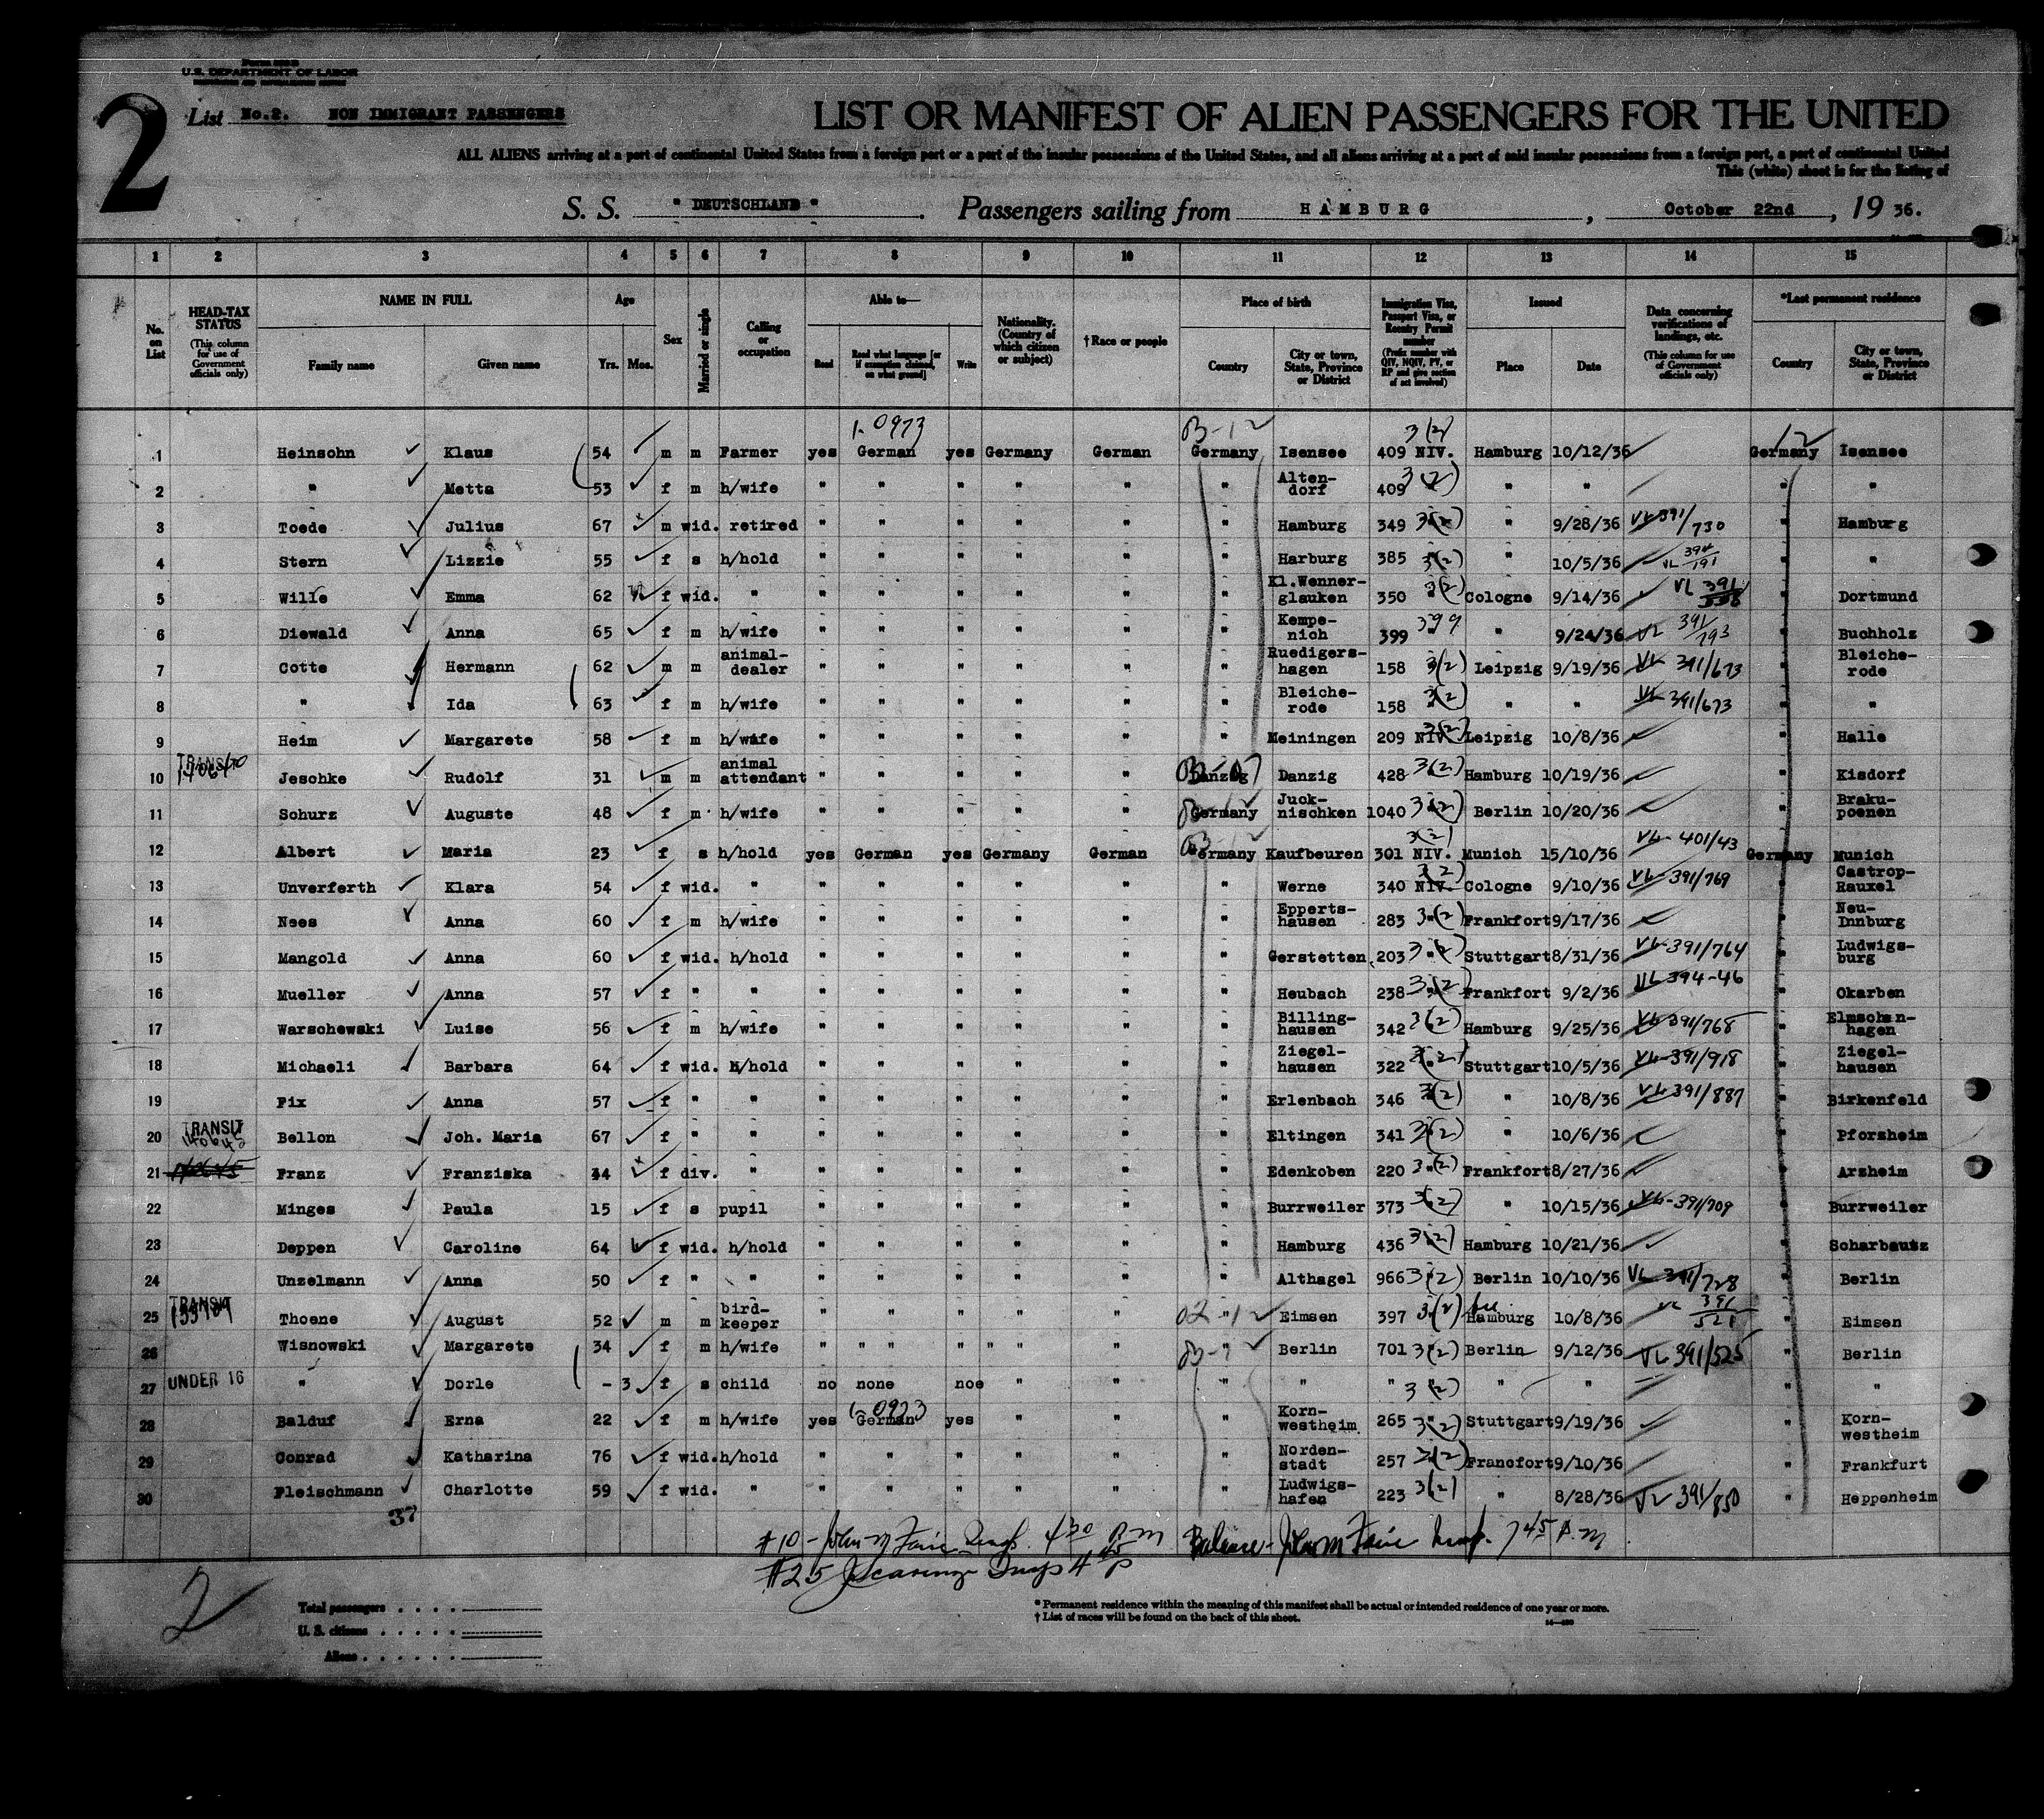 Form 500 B
U.S. DEPARTMENT OF LABOR
2
List No.2. NON IMMIGRANT PASSENGERS
LIST OR MANIFEST OF ALIEN PASSENGERS FOR THE UNITED
ALL ALIENS arriving at a port of continental United States from a foreign port or a port of the insular possessions of the United States, and all aliens arriving at a port of said insular possessions from a foreign port, a port of continental United
This (white) sheet is for the listing of
S. S. " DEUTSCHLAND " Passengers sailing from HAMBURG, October 22nd, 19 36.
1 2 3 4 5 6 7 8 9 10 11 12 13 14 15
No. on List
HEAD-TAX STATUS (This column for use of Government officials only)
NAME IN FULL Family name Given name
Age Yrs. Mos.
Sex
Married or single
Calling or occupation
Able to— Read Read what language [or if exemption claimed, on what ground] Write
Nationality. (Country of which citizen or subject)
†Race or people
Place of birth Country City or town, State, Province or District
Immigration Visa, Passport Visa, or Reentry Permit number (Prefix number with QIV, NQIV, PV, or RP and give section of act involved)
Issued Place Date
Data concerning verifications of landings, etc. (This column for use of Government officials only)
*Last permanent residence Country City or town, State, Province or District
1-0973 B-12 3(2) 12
1 Heinsohn Klaus 54 m m Farmer yes German yes Germany German Germany Isensee 409 NIV. Hamburg 10/12/36 Germany Isensee
2 " Metta 53 f m h/wife " " " " " " Alten-dorf 409 3(2) " " " "
3 Toede Julius 67 m wid. retired " " " " " " Hamburg 349 3(2) " 9/28/36 VL 391/730 " Hamburg
4 Stern Lizzie 55 f s h/hold " " " " " " Harburg 385 3(2) " 10/5/36 VL 394/191 " "
5 Wille Emma 62 f wid. " " " " " " " Kl.Wenner-glauken 350 3(2) Cologne 9/14/36 VL 391/558 " Dortmund
6 Diewald Anna 65 f m h/wife " " " " " " Kempe-nich 399 399 " 9/24/36 VL 391/793 " Buchholz
7 Cotte Hermann 62 m m animal-dealer " " " " " " Ruedigers-hagen 158 3(2) Leipzig 9/19/36 VL 391/673 " Bleiche-rode
8 " Ida 63 f m h/wife " " " " " " Bleiche-rode 158 3(2) " " VL 391/673 " "
9 Heim Margarete 58 f m h/wife " " " " " " Meiningen 209 NIV. 3(2) Leipzig 10/8/36 " Halle
10 TRANSIT 140640 Jeschke Rudolf 31 m m animal attendant " " " " " Danzig Danzig 428 3(2) Hamburg 10/19/36 " Kisdorf
11 Schurz Auguste 48 f m h/wife " " " " " Germany Juck-nischken 1040 3(2) Berlin 10/20/36 " Braku-poenen
12 Albert Maria 23 f s h/hold yes German yes Germany German Germany Kaufbeuren 301 NIV. 3(2) Munich 15/10/36 VL-401/43 Germany Munich
13 Unverferth Klara 54 f wid. " " " " " " " Werne 340 NIV. 3(2) Cologne 9/10/36 VL-391/769 " Castrop-Rauxel
14 Nees Anna 60 f m h/wife " " " " " " Epperts-hausen 283 3(2) Frankfort 9/17/36 " Neu-Innburg
15 Mangold Anna 60 f wid. h/hold " " " " " " Gerstetten 203 3(2) Stuttgart 8/31/36 VL-391/764 " Ludwigs-burg
16 Mueller Anna 57 f " " " " " " " " Heubach 238 3(2) Frankfort 9/2/36 VL 394-46 " Okarben
17 Warschewski Luise 56 f m h/wife " " " " " " Billing-hausen 342 3(2) Hamburg 9/25/36 VL-391/768 " Elmschen-hagen
18 Michaeli Barbara 64 f wid. h/hold " " " " " " Ziegel-hausen 322 3(2) Stuttgart 10/5/36 VL-391/918 " Ziegel-hausen
19 Fix Anna 57 f " " " " " " " " Erlenbach 346 3(2) " 10/8/36 VL 391/887 " Birkenfeld
20 TRANSIT 140645 Bellon Joh. Maria 67 f " " " " " " " " Eltingen 341 3(2) " 10/6/36 " Pforzheim
21 Franz Franziska 44 f div. " " " " " " " Edenkoben 220 3(2) Frankfort 8/27/36 " Arzheim
22 Minges Paula 15 f s pupil " " " " " " Burrweiler 373 3(2) " 10/15/36 VL-391/709 " Burrweiler
23 Deppen Caroline 64 f wid. h/hold " " " " " " Hamburg 436 3(2) Hamburg 10/21/36 " Scharbautz
24 Unzelmann Anna 50 f " " " " " " " " Althagel 966 3(2) Berlin 10/10/36 VL 391/728 " Berlin
25 TRANSIT Thoene August 52 m m bird-keeper " " " " " 02 " 12 Eimsen 397 3(2) Hamburg 10/8/36 VL 391/521 " Eimsen
26 Wisnowski Margarete 34 f m h/wife " " " " " " " " Berlin 701 3(2) Berlin 9/12/36 VL 391/525 " Berlin
27 UNDER 16 " Dorle - 3 f s child no none noe " " " " " 3(2) " " " "
1-0973
28 Balduf Erna 22 f m h/wife yes German yes " " " Korn-westheim 265 3(2) Stuttgart 9/19/36 " Korn-westheim
29 Conrad Katharina 76 f wid. h/hold " " " " " " Norden-stadt 257 3(2) Francfort 9/10/36 " Frankfurt
30 Fleischmann Charlotte 59 f wid. " " " " " " " Ludwigs-hafen 223 3(2) " 8/28/36 VL 391/850 " Heppenheim
37
#10 - John M Fair Insp. 4 30 P.M Balance - John M Fair Insp. 7 45 P.M
#25 Insp 4 45 P
2
Total passengers
U. S. citizens
Aliens
* Permanent residence within the meaning of this manifest shall be actual or intended residence of one year or more.
† List of races will be found on the back of this sheet.